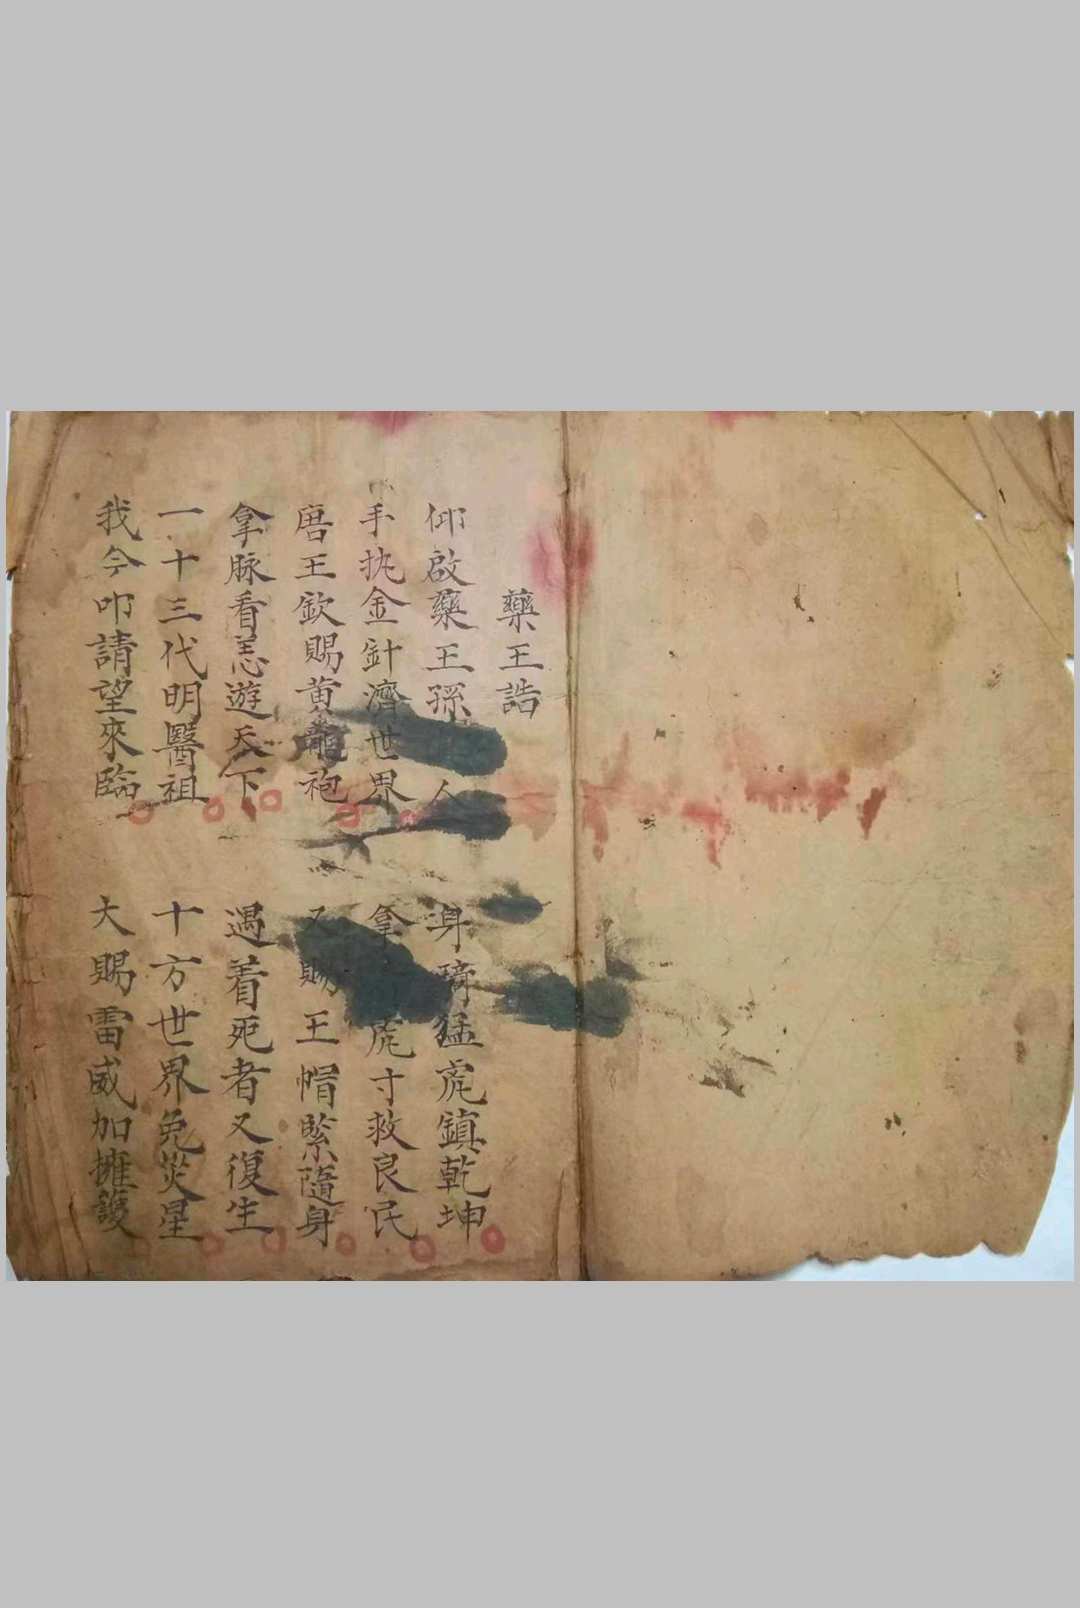 藥王誥
仰啟藥王孫 人 身琦猛虎鎮乾坤
手执金針濟世界 拿 虎寸救良民
唐王欽賜黄龍袍 又賜王帽緊隨身
拿脉看恙遊天下 遇着死者又復生
一十三代明醫祖 十方世界免災星
我今叩請望來臨 大賜雷威加擁護